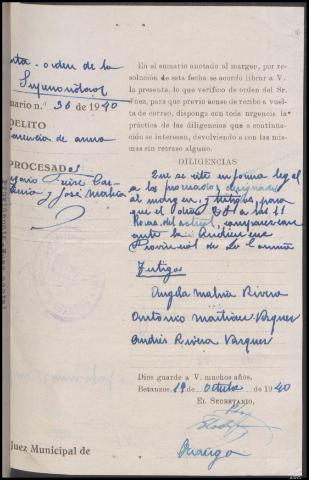 orden de la
Superioridad
En el sumario anotado al margen, por re-
solución de esta fecha se acordó librar a V.
la presente, lo que verifico de orden del Sr.
Juez, para que previo acuse de recibo a vuelta
de correo, disponga con toda urgencia la
práctica de las diligencias que a continua-
ción se interesan, devolviendo a con las mis-
mas sin retraso alguno.
uario n.º 36 de 1940
DELITO
tenencia de arma
PROCESADOS
y José
DILIGENCIAS
Que se cite en forma legal
a los procesados designados
al margen, y testigos, para
que el día a las 11
horas comparezcan
ante la Audiencia
Provincial de La Coruña
Testigos
Angela Rivera
Antonio Martinez Vazquez
Andrés Rivera Vazquez
Dios guarde a V. muchos años.
Betanzos, 19 de Octubre de 1940
EL SECRETARIO,
Juez Municipal de